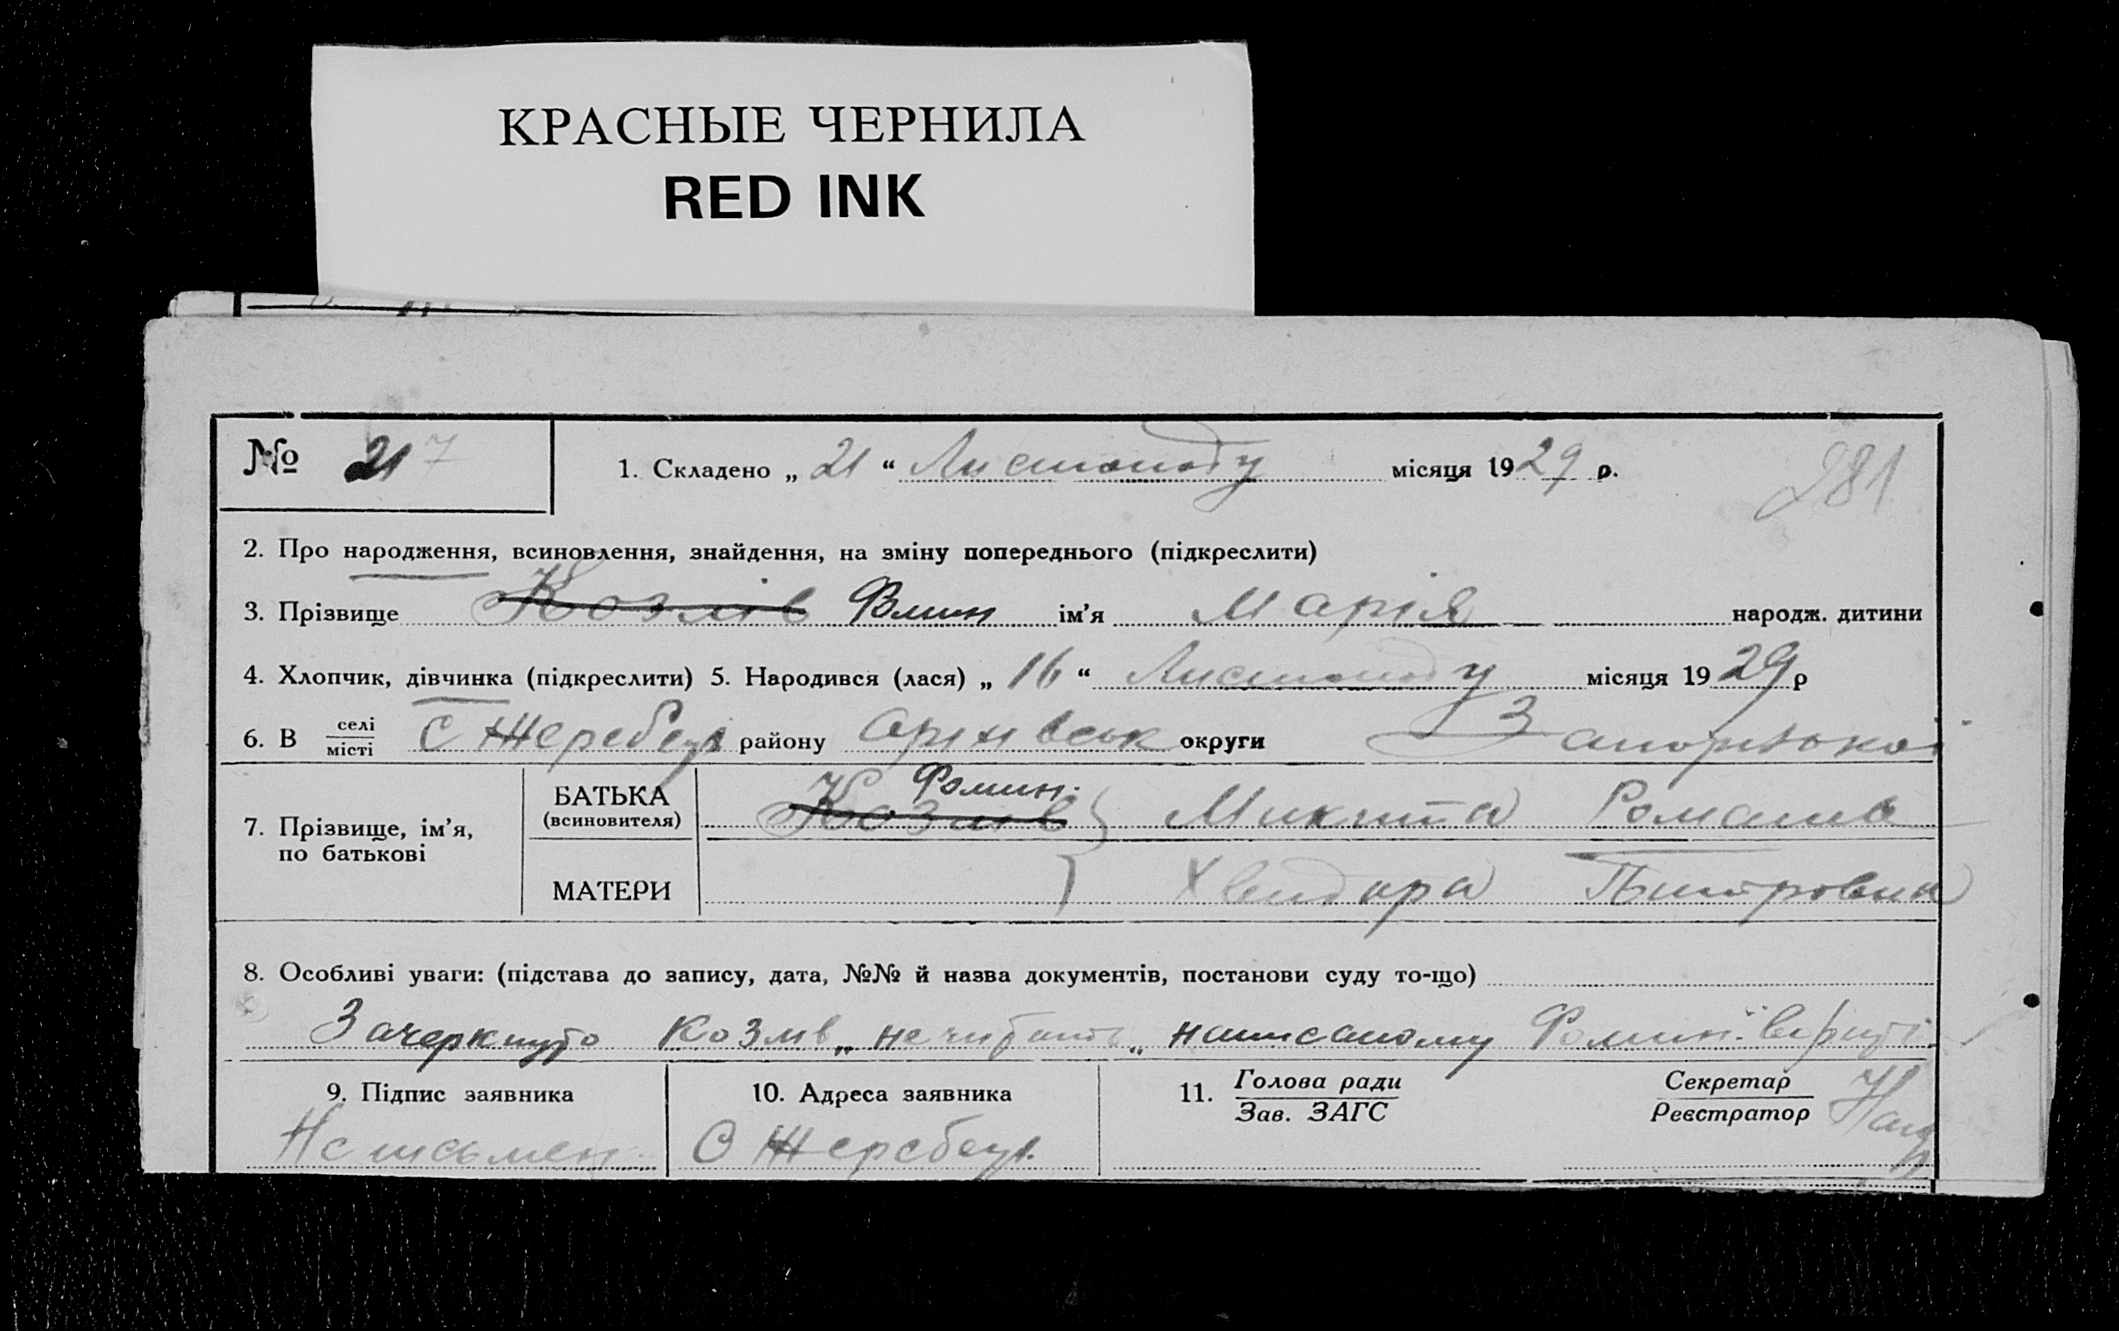 КРАСНЫЕ ЧЕРНИЛА
RED INK
№ 217
1. Складено „ 21 “ Листопаду місяця 1929 р.
281
2. Про народження, всиновлення, знайдення, на зміну попереднього (підкреслити)
3. Прізвище Козлів Фомин ім’я Марія народж. дитини
4. Хлопчик, дівчинка (підкреслити) 5. Народився (лася) „ 16 “ Листопаду місяця 1929 р
6. В селі/місті С Жеребець району округи Запорізької
7. Прізвище, ім’я, по батькові
БАТЬКА (всиновителя) Козлів Фомин. Микита Романів
МАТЕРИ Петровна
8. Особливі уваги: (підстава до запису, дата, №№ й назва документів, постанови суду то-що)
Зачеркнуто Козлів „ не читать „ написаному Фомин вірити
9. Підпис заявника
10. Адреса заявника
11. Голова ради / Зав. ЗАГС
Секретар / Реєстратор
Неписьмен
С Жеребець